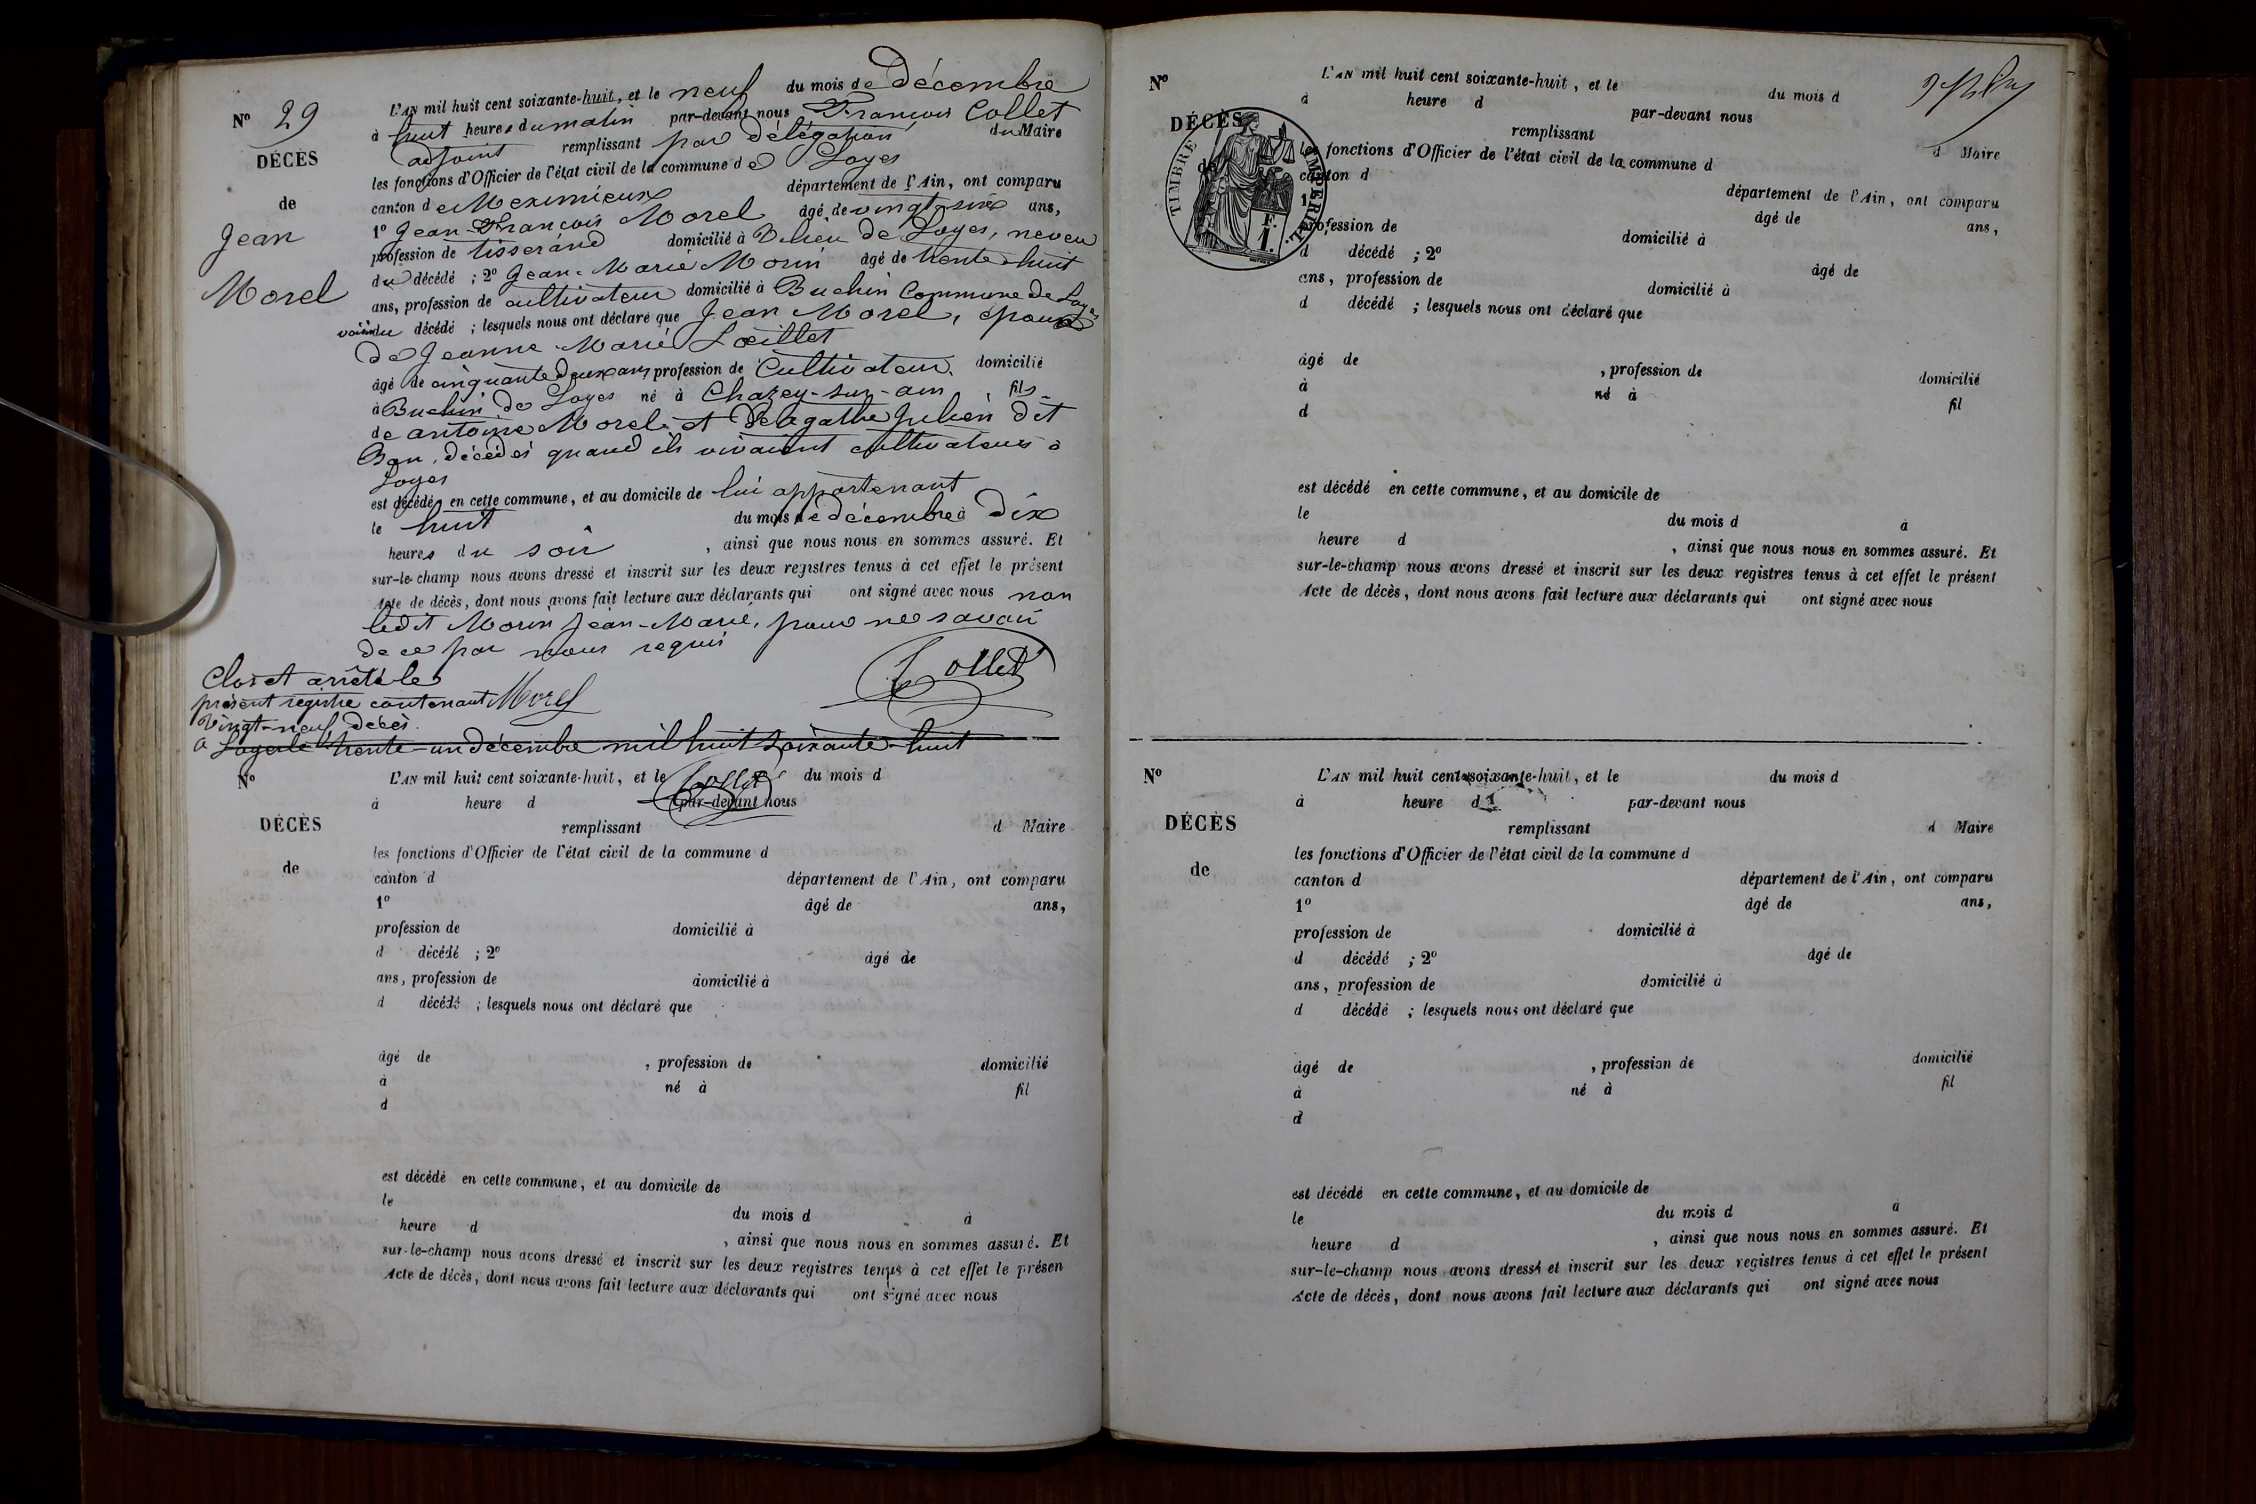 Nº 29
DÉCÈS
de
Jean
Morel
L'AN mil huit cent soixante-huit, et le neuf du mois de Décembre
à huit heures du matin par-devant nous François Collet
adjoint remplissant par délégation du Maire
les fonctions d'Officier de l'état civil de la commune de Loyes
canton de Meximieux département de l'Ain, ont comparu
1º Jean-François Morel âgé de vingt-six ans,
profession de tisserand domicilié à de Loyes, neveu
du décédé ; 2º Jean-Marie Morin âgé de trente-huit
ans, profession de cultivateur domicilié à Buchin Commune de Loyes
voisin du décédé ; lesquels nous ont déclaré que Jean Morel, époux
de Jeanne Marie Loeillet
âgé de cinquante deux ans, profession de Cultivateur domicilié
à Buchin de Loyes né à Chazey-sur-ain fils
de antoine Morel et de agathe Julien dit
Ban, décédés quand ils vivaient cultivateurs à
Loyes
est décédé en cette commune, et au domicile de lui appartenant
le huit du mois de décembre à Dix
heures du soir, ainsi que nous nous en sommes assuré. Et
sur-le-champ nous avons dressé et inscrit sur les deux registres tenus à cet effet le présent
Acte de décès, dont nous avons fait lecture aux déclarants qui ont signé avec nous non
ledit Morin Jean-Marie, pour ne savoir
de ce par nous requis
Collet
Morel
Clos et arrêté le
présent registre contenant
vingt-neuf décès
a Loyes le trente-un décembre mil huit soixante-huit
Collet
Nº
DÉCÈS
de
L'AN mil huit cent soixante-huit, et le du mois d
à heure d par-devant nous
remplissant d Maire
les fonctions d'Officier de l'état civil de la commune d
canton d département de l'Ain, ont comparu
1º âgé de ans,
profession de domicilié à
d décédé ; 2º âgé de
ans, profession de domicilié à
d décédé ; lesquels nous ont déclaré que
âgé de , profession de domicilié
à né à fil
d
est décédé en cette commune, et au domicile de
le du mois d à
heure d , ainsi que nous nous en sommes assuré. Et
sur-le-champ nous avons dressé et inscrit sur les deux registres tenus à cet effet le présen
Acte de décès, dont nous avons fait lecture aux déclarants qui ont signé avec nous
Nº
DÉCÈS
de
TIMBRE IMPERIAL
F.
1.
L'AN mil huit cent soixante-huit, et le du mois d
à heure d par-devant nous
remplissant d Maire
les fonctions d'Officier de l'état civil de la commune d
canton d département de l'Ain, ont comparu
1º âgé de ans,
profession de domicilié à
d décédé ; 2º âgé de
ans, profession de domicilié à
d décédé ; lesquels nous ont déclaré que
âgé de , profession de domicilié
à né à fil
d
est décédé en cette commune, et au domicile de
le du mois d à
heure d , ainsi que nous nous en sommes assuré. Et
sur-le-champ nous avons dressé et inscrit sur les deux registres tenus à cet effet le présent
Acte de décès, dont nous avons fait lecture aux déclarants qui ont signé avec nous
Nº
DÉCÈS
de
L'AN mil huit cent soixante-huit, et le du mois d
à heure d par-devant nous
remplissant d Maire
les fonctions d'Officier de l'état civil de la commune d
canton d département de l'Ain, ont comparu
1º âgé de ans,
profession de domicilié à
d décédé ; 2º âgé de
ans, profession de domicilié à
d décédé ; lesquels nous ont déclaré que
âgé de , profession de domicilié
à né à fil
d
est décédé en cette commune, et au domicile de
le du mois d à
heure d , ainsi que nous nous en sommes assuré. Et
sur-le-champ nous avons dressé et inscrit sur les deux registres tenus à cet effet le présent
Acte de décès, dont nous avons fait lecture aux déclarants qui ont signé avec nous